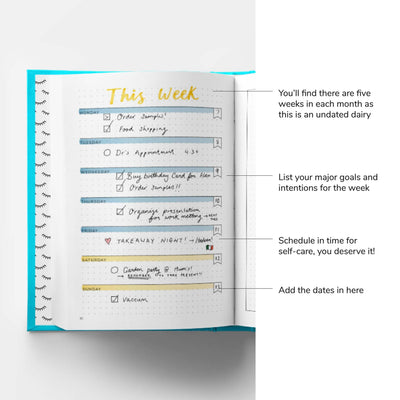 This Week
You'll find there are five
weeks in each month as
this is an undated dairy
MONDAY 7
Order Samples!
Food Shopping
TUESDAY 8
Dr's Appointment 4:30
WEDNESDAY 9
Buy birthday Card for
Order Samples!!
List your major goals and
intentions for the week
THURSDAY 10
Organise presentation
for work meeting →
FRIDAY 11
TAKEAWAY NIGHT! →
Schedule in time for
self-care, you deserve it!
SATURDAY 12
Garden party @ Mum's!
→ REMEMBER TO TAKE PRESENT!!
SUNDAY 13
Vaccum
Add the dates in here